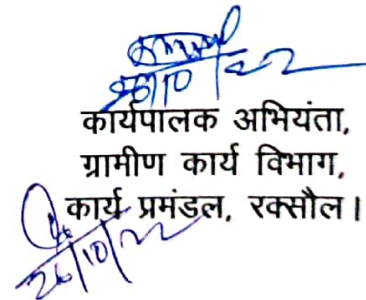 26/10/22
कार्यपालक अभियंता,
ग्रामीण कार्य विभाग,
कार्य प्रमंडल, रक्सौल।
26/10/22